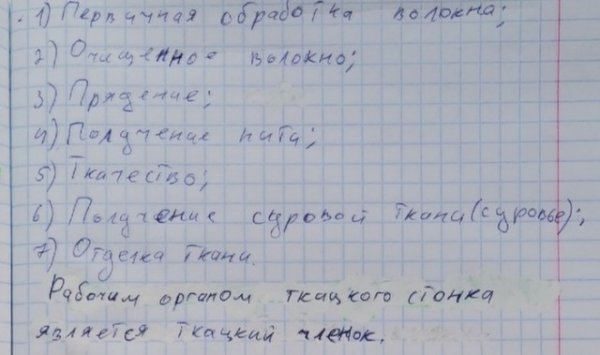 1) Первичная обработка волокна;
2) Очищенное волокно;
3) Прядение;
4) Получение нити;
5) Ткачество;
6) Получение суровой ткани (суровье);
7) Отделка ткани.
Рабочим органом ткацкого станка
является ткацкий членок.